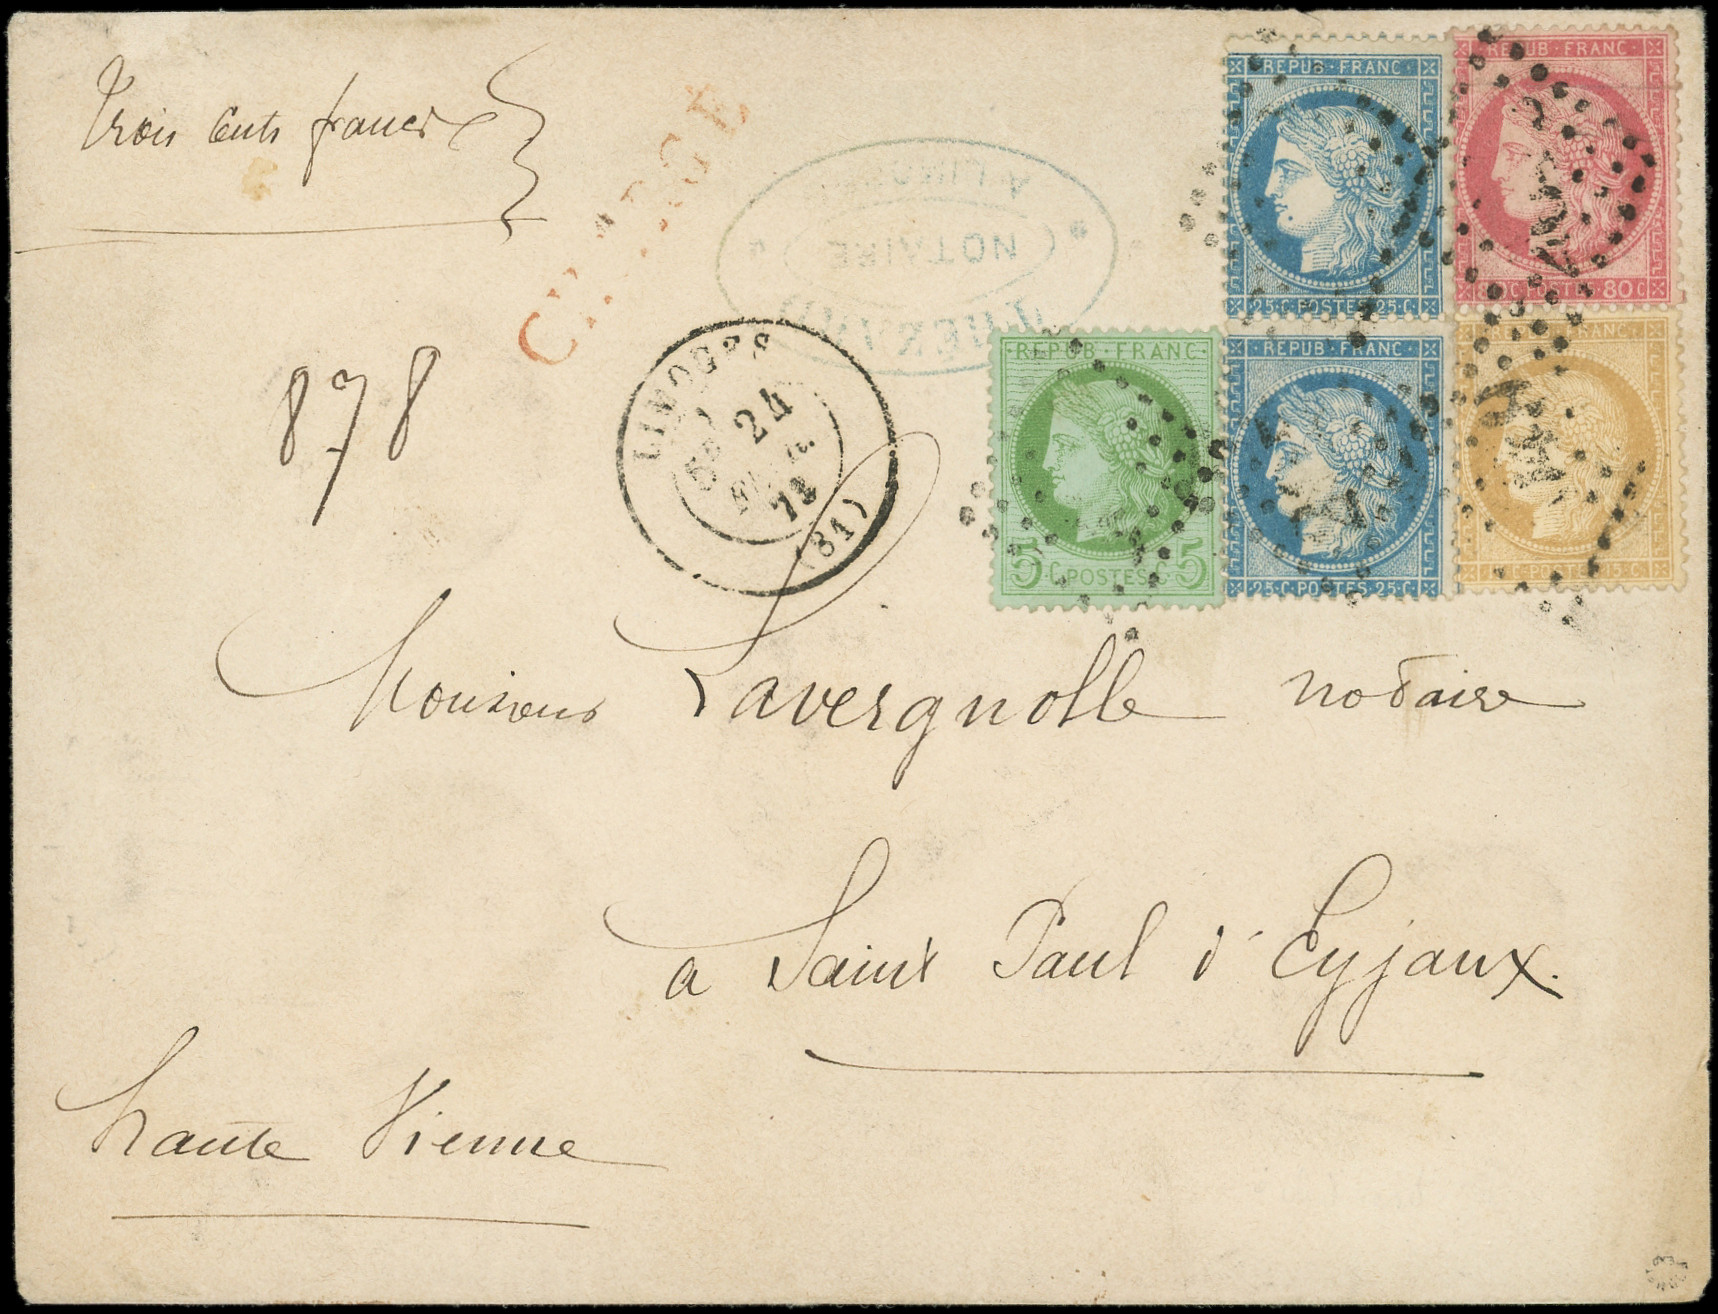 Trois Cents francs
REPUB · FRANC
REPUB · FRANC
25·C·POSTES·25·C
80·C·POSTES·80·C
NOTAIRE
878
LIMOGES
24
(81)
REPUB · FRANC
5·C·POSTES·C·5
REPUB · FRANC
25·C·POSTES·25·C
FRANC
POSTES 15·C
Monsieur Lavergnolle notaire
a Saint Paul d'Eyjaux.
haute Vienne